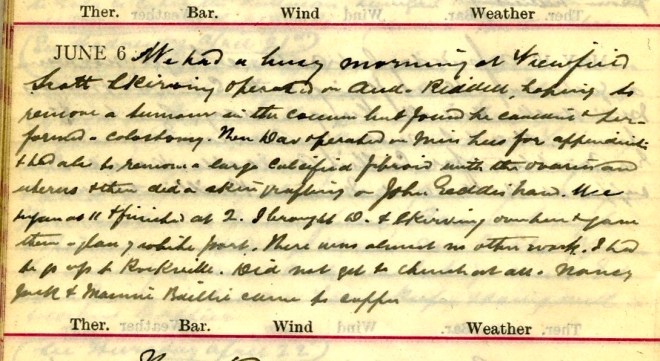 Ther. Bar. Wind Weather
JUNE 6 We had a busy morning at Viewfield
Scott Skirving operated on And. Riddell, hoping to
remove a tumour in the coecum but found he couldn't & per-
formed a colostomy. Then Dav operated on Miss Lees for appendicitis
& had also to remove a large calcified fibroid with the ovaries and
uterus & then did a skin grafting on John hand. We
began at 11 & finished at 2. I brought D. & Skirving over here & gave
them a glass of white port. There was almost no other work. I had
to go up to Rockville. Did not get to church at all. Nancy
Jack & Mamie Baillie came to supper
Ther. Bar. Wind Weather